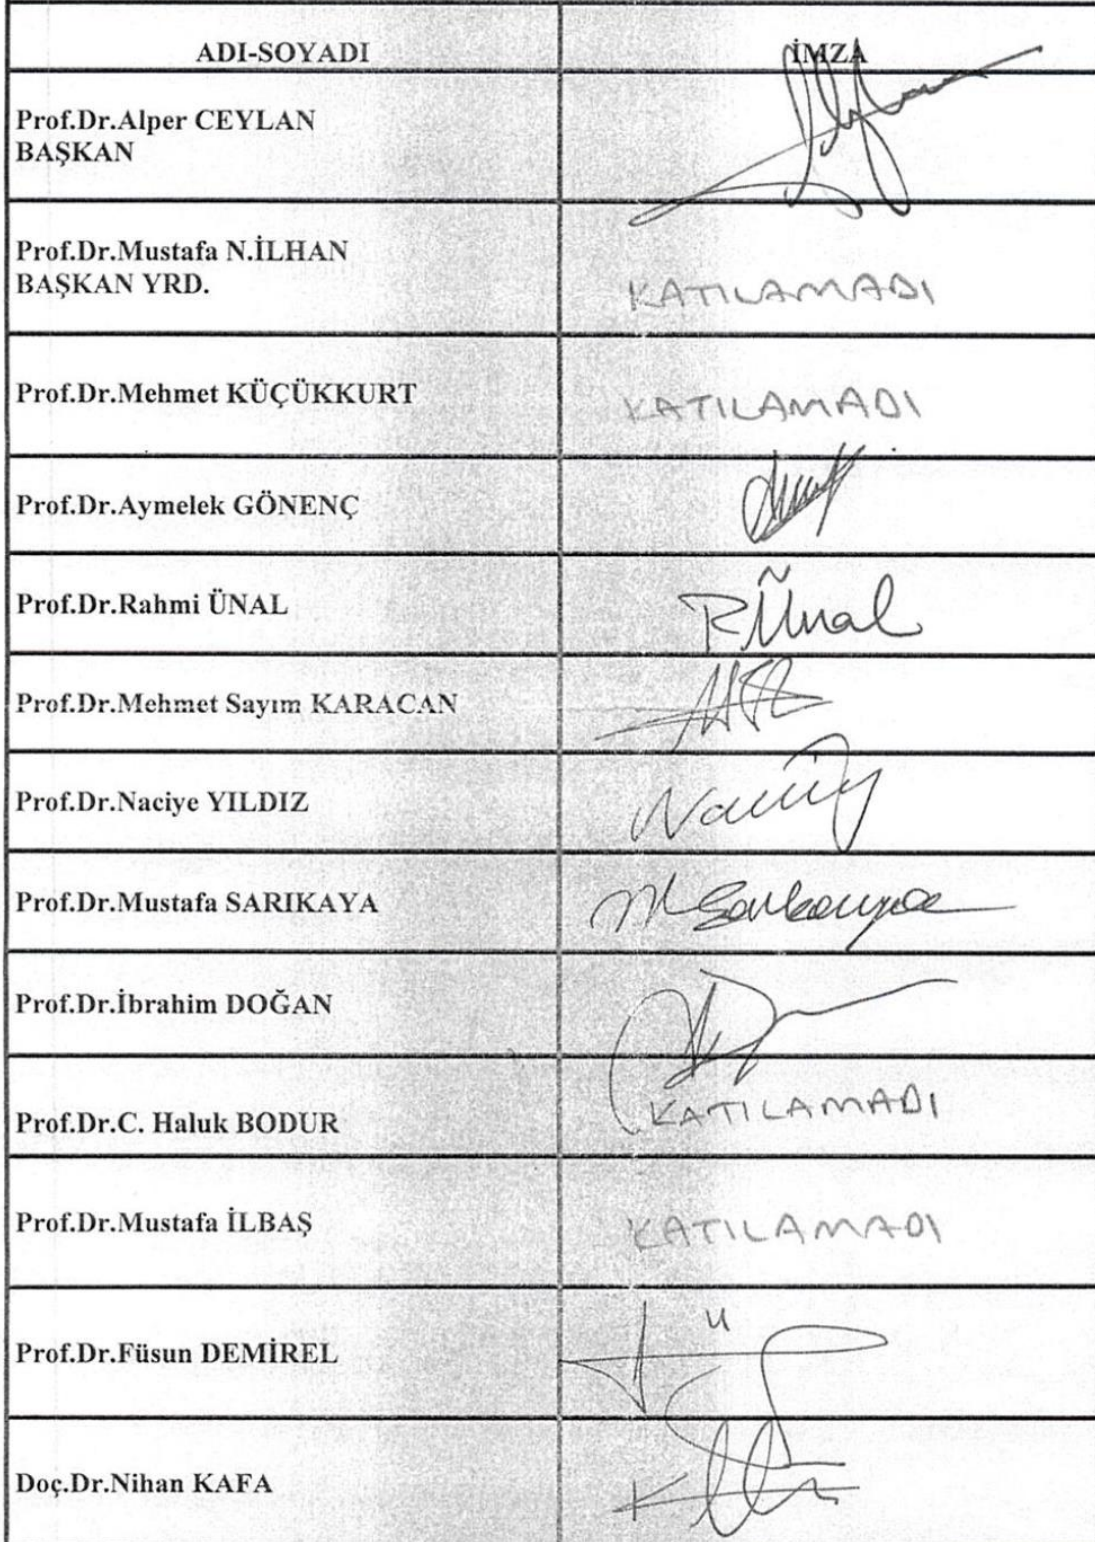 ADI-SOYADI İMZA
Prof.Dr.Alper CEYLAN
BAŞKAN
Prof.Dr.Mustafa N.İLHAN
BAŞKAN YRD.
KATILAMADI
Prof.Dr.Mehmet KÜÇÜKKURT KATILAMADI
Prof.Dr.Aymelek GÖNENÇ
Prof.Dr.Rahmi ÜNAL R.Ünal
Prof.Dr.Mehmet Sayım KARACAN
Prof.Dr.Naciye YILDIZ
Prof.Dr.Mustafa SARIKAYA M Sarıkaya
Prof.Dr.İbrahim DOĞAN
Prof.Dr.C. Haluk BODUR KATILAMADI
Prof.Dr.Mustafa İLBAŞ KATILAMADI
Prof.Dr.Füsun DEMİREL
Doç.Dr.Nihan KAFA